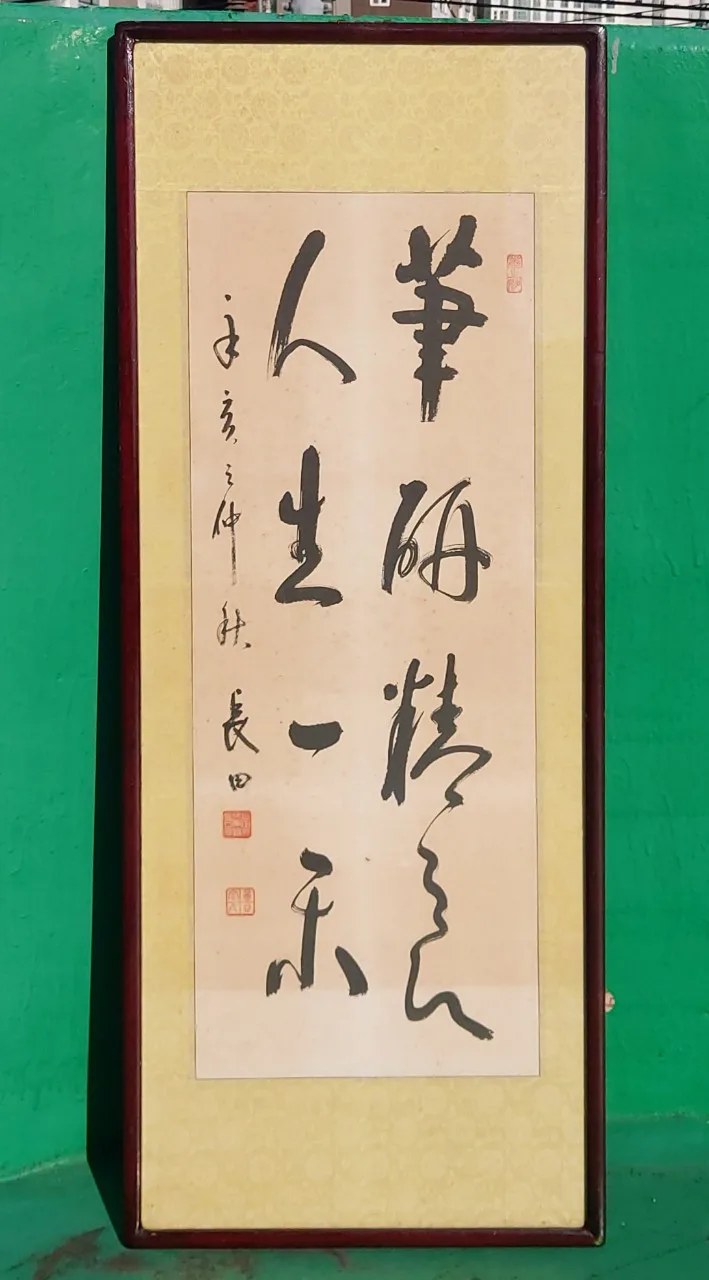 筆硏精良
人生一樂
辛亥之仲秋 長田